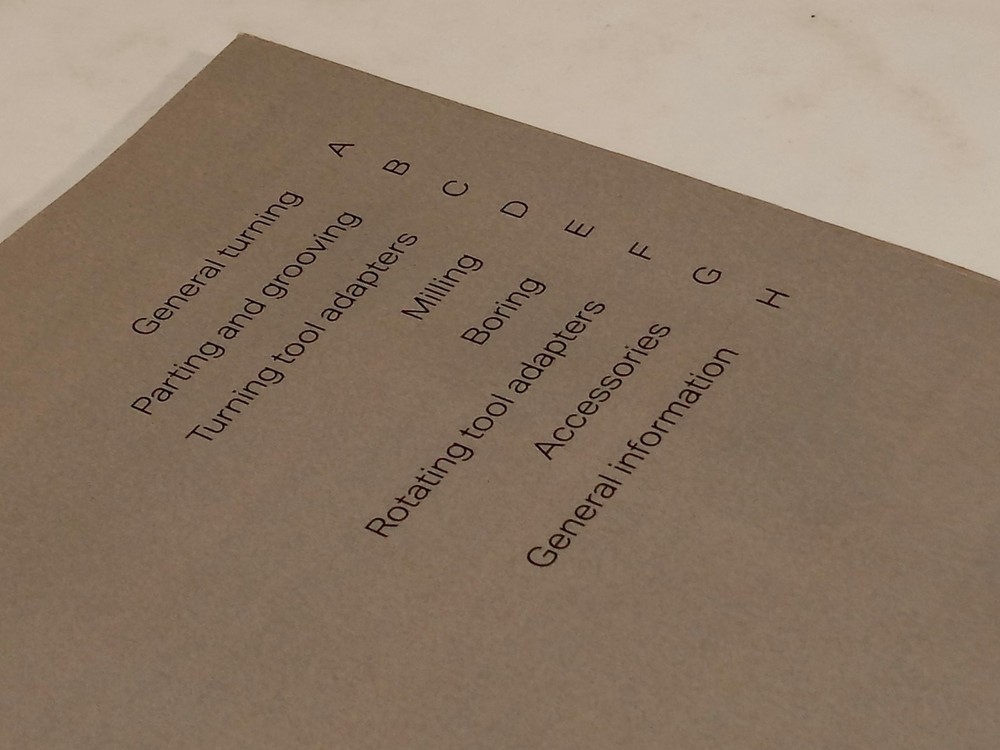 General turning A
Parting and grooving B
Turning tool adapters C
Milling D
Boring E
Rotating tool adapters F
Accessories G
General information H